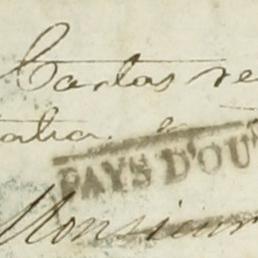 Cartas re
PAYS D'OU
Monsieur